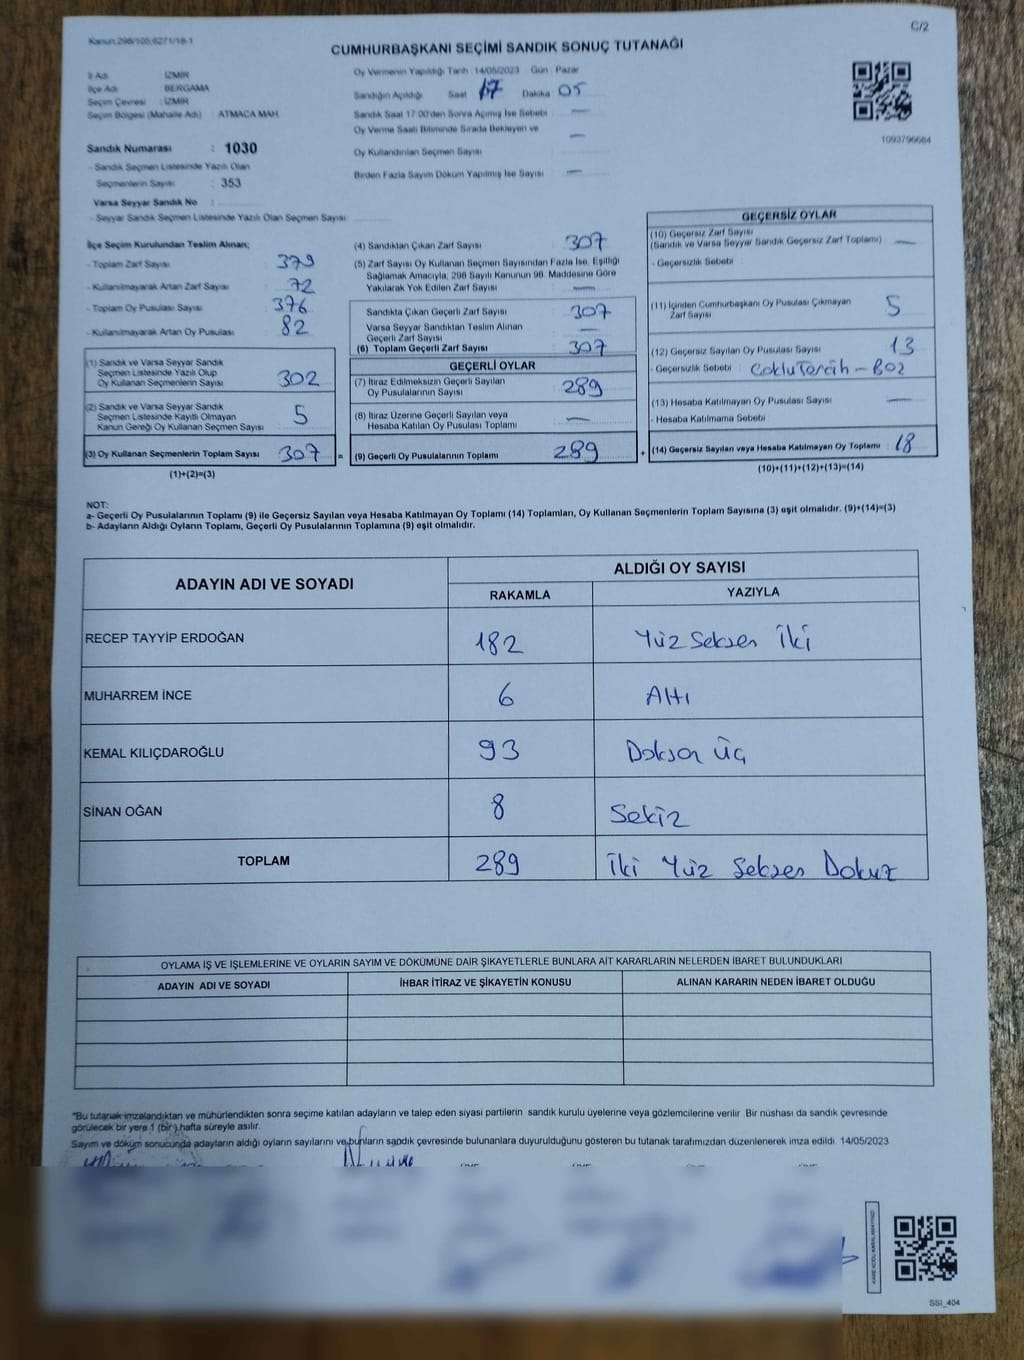 C/2
Kanun:298/105;6271/18-1
CUMHURBAŞKANI SEÇİMİ SANDIK SONUÇ TUTANAĞI
İl Adı : İZMİR
İlçe Adı : BERGAMA
Seçim Çevresi : İZMİR
Seçim Bölgesi (Mahalle Adı) : ATMACA MAH.
Sandık Numarası : 1030
- Sandık Seçmen Listesinde Yazılı Olan
Seçmenlerin Sayısı : 353
Varsa Seyyar Sandık No :
- Seyyar Sandık Seçmen Listesinde Yazılı Olan Seçmen Sayısı
Oy Vermenin Yapıldığı Tarih : 14/05/2023 Gün : Pazar
Sandığın Açıldığı Saat 17 Dakika 05
Sandık Saat 17:00'den Sonra Açılmış İse Sebebi —
Oy Verme Saati Bitiminde Sırada Bekleyen ve
Oy Kullandırılan Seçmen Sayısı —
Birden Fazla Sayım Döküm Yapılmış İse Sayısı —
1093796684
İlçe Seçim Kurulundan Teslim Alınan;
- Toplam Zarf Sayısı 379
- Kullanılmayarak Artan Zarf Sayısı 72
- Toplam Oy Pusulası Sayısı 376
- Kullanılmayarak Artan Oy Pusulası 82
(1) Sandık ve Varsa Seyyar Sandık
Seçmen Listesinde Yazılı Olup
Oy Kullanan Seçmenlerin Sayısı 302
(2) Sandık ve Varsa Seyyar Sandık
Seçmen Listesinde Kayıtlı Olmayan
Kanun Gereği Oy Kullanan Seçmen Sayısı 5
(3) Oy Kullanan Seçmenlerin Toplam Sayısı 307 =
(1)+(2)=(3)
(4) Sandıktan Çıkan Zarf Sayısı 307
(5) Zarf Sayısı Oy Kullanan Seçmen Sayısından Fazla İse, Eşitliği
Sağlamak Amacıyla, 298 Sayılı Kanunun 98. Maddesine Göre
Yakılarak Yok Edilen Zarf Sayısı —
Sandıkta Çıkan Geçerli Zarf Sayısı 307
Varsa Seyyar Sandıktan Teslim Alınan
Geçerli Zarf Sayısı —
(6) Toplam Geçerli Zarf Sayısı 307
GEÇERLİ OYLAR
(7) İtiraz Edilmeksizin Geçerli Sayılan
Oy Pusulalarının Sayısı 289
(8) İtiraz Üzerine Geçerli Sayılan veya
Hesaba Katılan Oy Pusulası Toplamı —
(9) Geçerli Oy Pusulalarının Toplamı 289 +
GEÇERSİZ OYLAR
(10) Geçersiz Zarf Sayısı
(Sandık ve Varsa Seyyar Sandık Geçersiz Zarf Toplamı) —
- Geçersizlik Sebebi :
(11) İçinden Cumhurbaşkanı Oy Pusulası Çıkmayan
Zarf Sayısı 5
(12) Geçersiz Sayılan Oy Pusulası Sayısı 13
- Geçersizlik Sebebi : Çoklu Tercih -
(13) Hesaba Katılmayan Oy Pusulası Sayısı —
- Hesaba Katılmama Sebebi
(14) Geçersiz Sayılan veya Hesaba Katılmayan Oy Toplamı 18
(10)+(11)+(12)+(13)=(14)
NOT:
a- Geçerli Oy Pusulalarının Toplamı (9) ile Geçersiz Sayılan veya Hesaba Katılmayan Oy Toplamı (14) Toplamları, Oy Kullanan Seçmenlerin Toplam Sayısına (3) eşit olmalıdır. (9)+(14)=(3)
b- Adayların Aldığı Oyların Toplamı, Geçerli Oy Pusulalarının Toplamına (9) eşit olmalıdır.
ADAYIN ADI VE SOYADI
ALDIĞI OY SAYISI
RAKAMLA YAZIYLA
RECEP TAYYİP ERDOĞAN 182 Yüz Seksen İki
MUHARREM İNCE 6 Altı
KEMAL KILIÇDAROĞLU 93 Doksan Üç
SİNAN OĞAN 8 Sekiz
TOPLAM 289 İki Yüz Seksen Dokuz
OYLAMA İŞ VE İŞLEMLERİNE VE OYLARIN SAYIM VE DÖKÜMÜNE DAİR ŞİKAYETLERLE BUNLARA AİT KARARLARIN NELERDEN İBARET BULUNDUKLARI
ADAYIN ADI VE SOYADI İHBAR İTİRAZ VE ŞİKAYETİN KONUSU ALINAN KARARIN NEDEN İBARET OLDUĞU
*Bu tutanak imzalandıktan ve mühürlendikten sonra seçime katılan adayların ve talep eden siyasi partilerin sandık kurulu üyelerine ve gözlemcilerine verilir. Bir nüshası da sandık çevresinde
görülecek bir yere 1 (bir) hafta süreyle asılır.
Sayım ve döküm sonucunda adayların aldığı oyların sayılarını ve bunların sandık çevresinde bulunanlara duyurulduğunu gösteren bu tutanak tarafımızdan düzenlenerek imza edildi. 14/05/2023
SSI_404